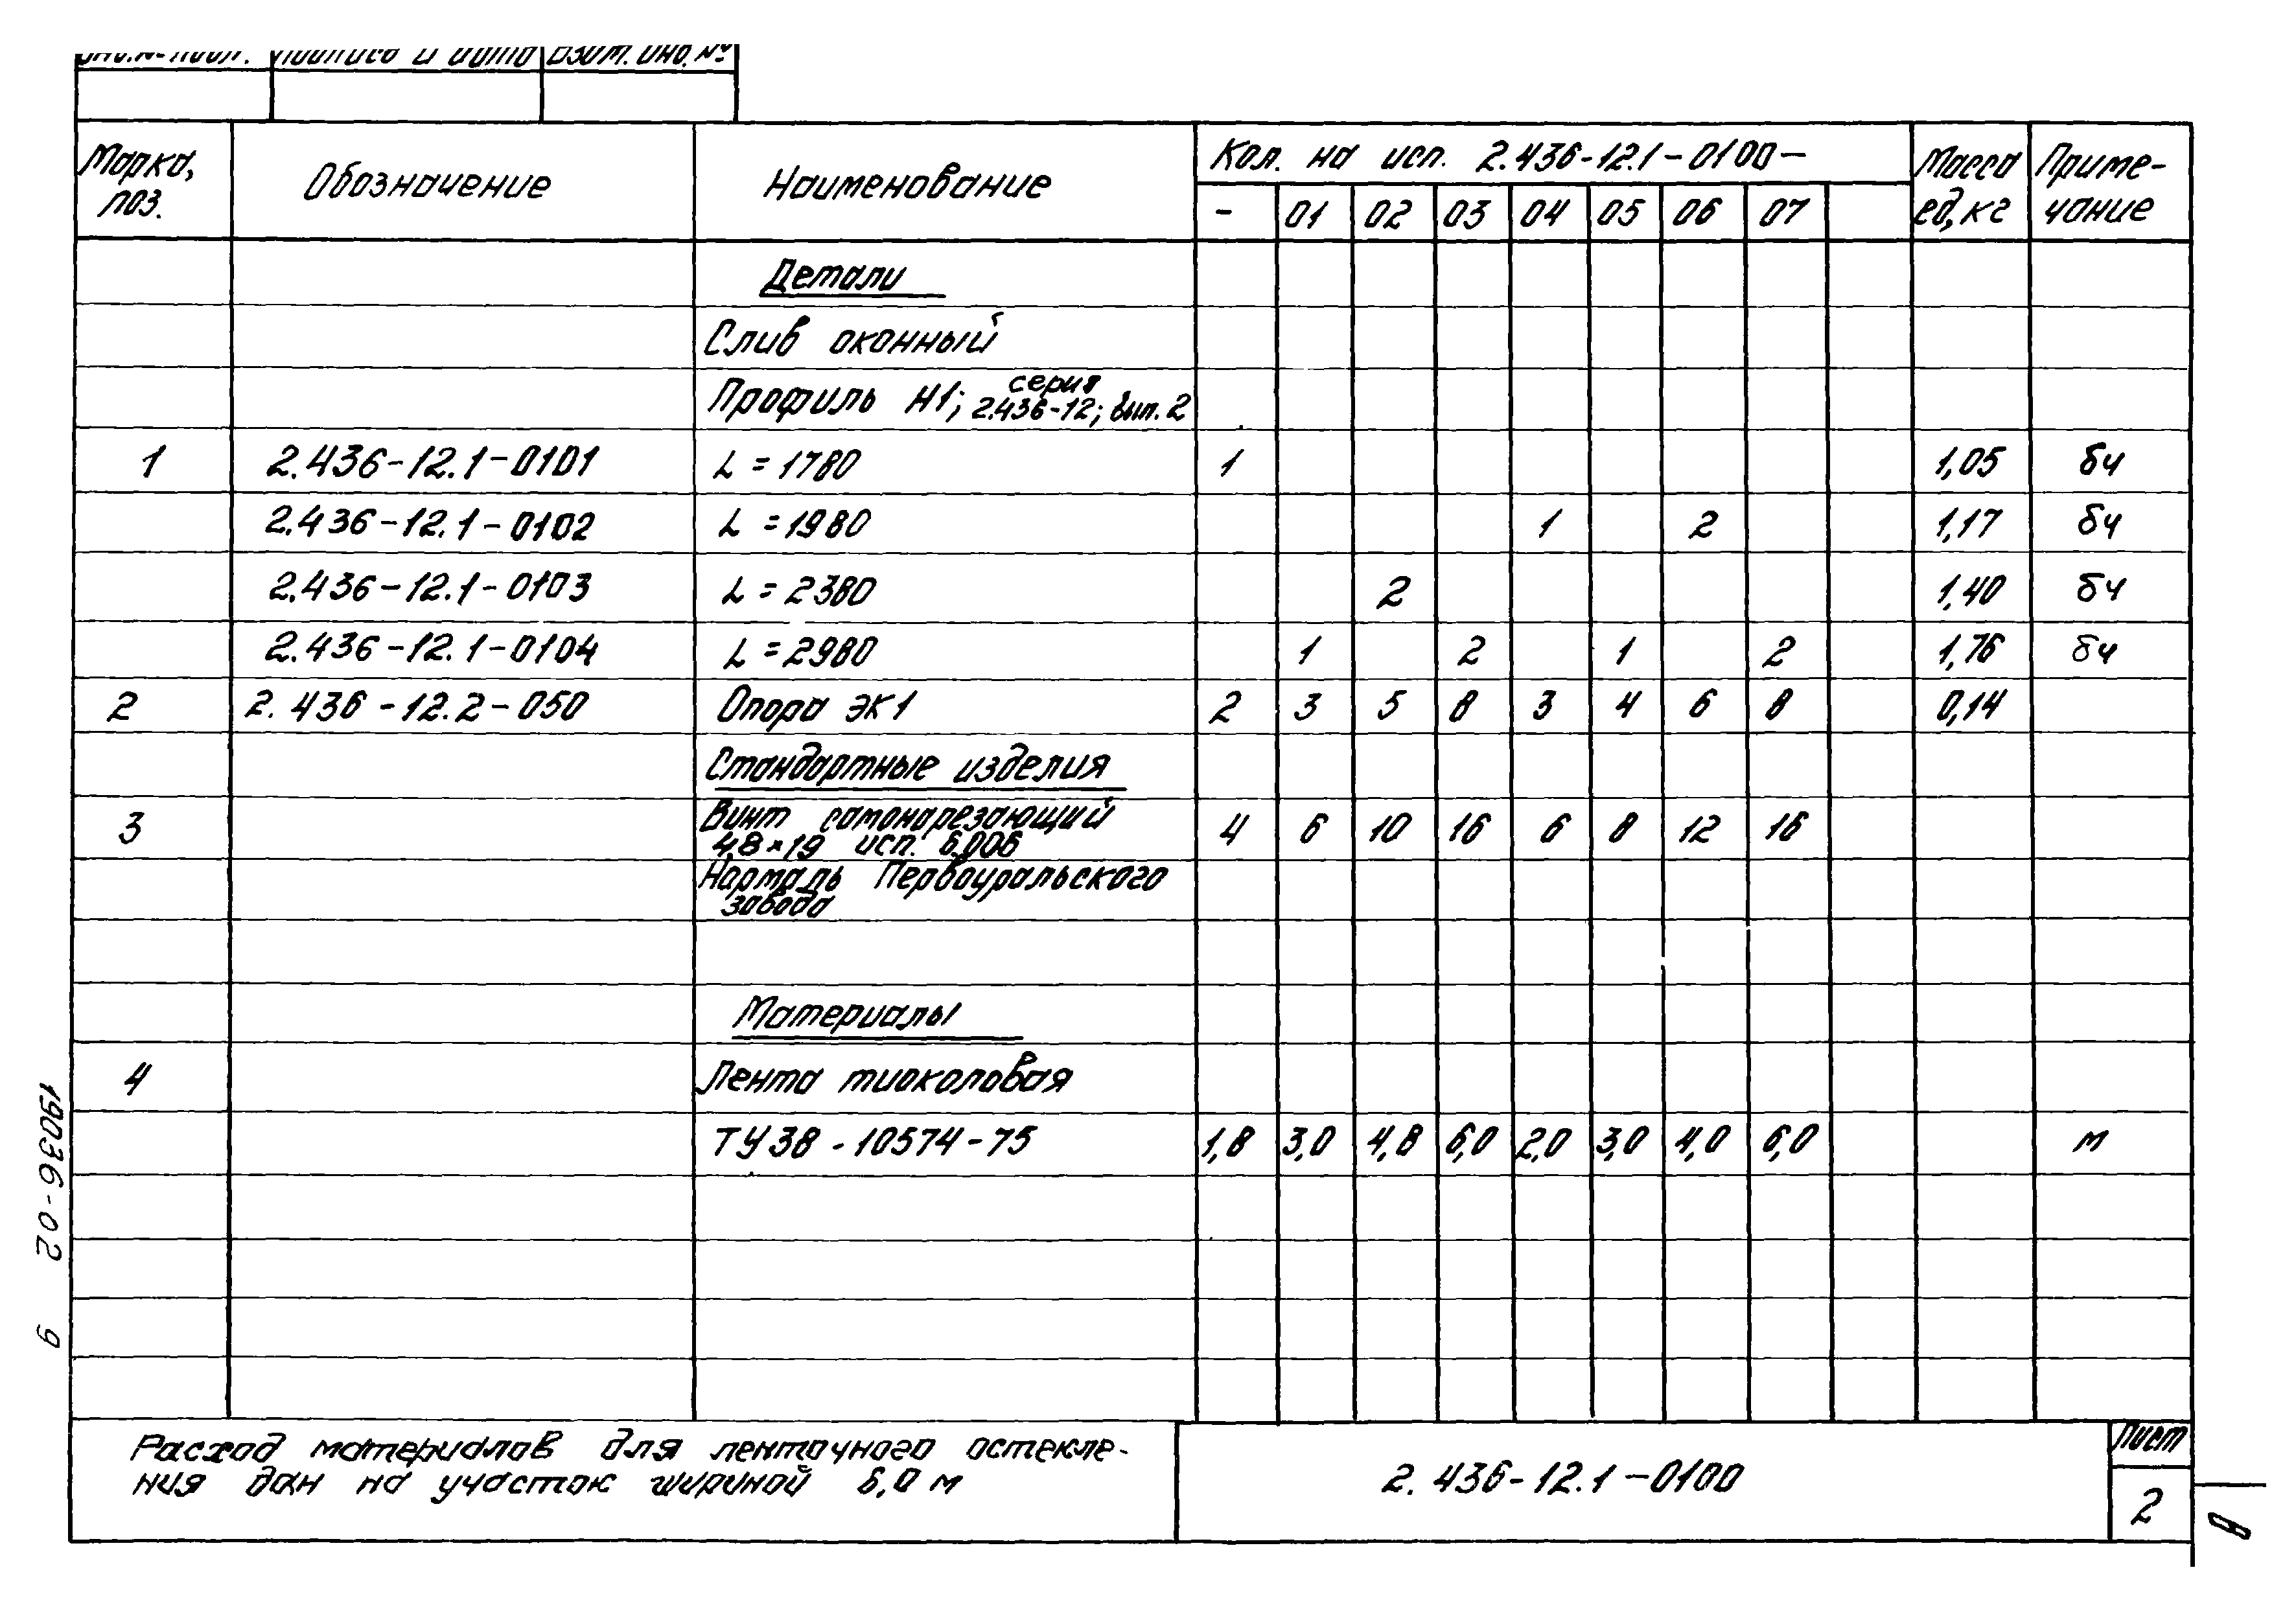 Инв.№ подл. Подпись и дата Взам. инв. №
Марка, поз. Обозначение Наименование Кол. на исп. 2.436-12.1-0100- Масса ед, кг Приме-чание
- 01 02 03 04 05 06 07
Детали
Слив оконный
Профиль Н1; серия 2.436-12; вып. 2
1 2.436-12.1-0101 L = 1780 1 1,05 бч
2.436-12.1-0102 L = 1980 1 2 1,17 бч
2.436-12.1-0103 L = 2380 2 1,40 бч
2.436-12.1-0104 L = 2980 1 2 1 2 1,76 бч
2 2.436-12.2-050 Опора ЭК1 2 3 5 8 3 4 6 8 0,14
Стандартные изделия
3 Винт самонарезающий 4 6 10 16 6 8 12 16
4,8×19 исп. 6.006
Нормаль Первоуральского
завода
Материалы
4 Лента тиоколовая
ТУ38-10574-75 1,8 3,0 4,8 6,0 2,0 3,0 4,0 6,0 м
Расход материалов для ленточного остекле-
ния дан на участок шириной 6,0 м
2.436-12.1-0100
Лист
2
19036-02 9
8